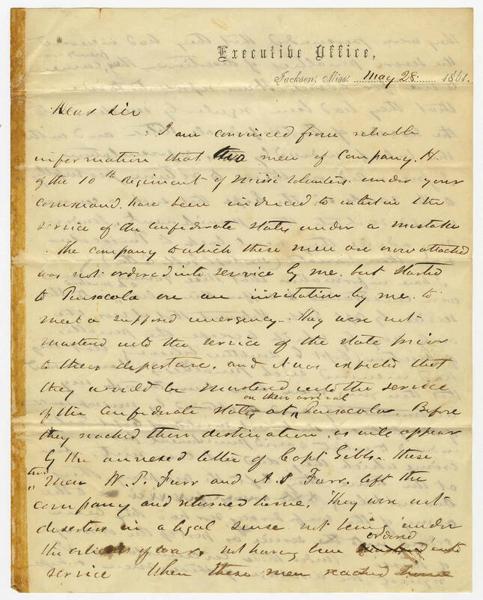 Executive Office,
Jackson, Miss. May 28 1861.
Dear Sir
I am convinced from reliable
information that two men of Company H
of the 10th Regiment of Missi Volunteers under your
command have been induced to enter in the
service of the Confederate States under a mistake
The company to which these men are now attached
was not ordered into service by me, but started
to Pensacola on an invitation by me, to
meet a supposed emergency. They were not
mustered into the service of the State prior
to their departure, and it was expected that
they would be mustered into the service
on their arrival
of the Confederate States at Pensacola. Before
they reached their destination, as will appear
by the annexed letter of Capt Gibbs. these
two men W. P. Furr and A. S Furr, left the
company and returned home. They were not
deserters in a legal sense not being under
the articles of war, not having been ordered into
service When these men reached home